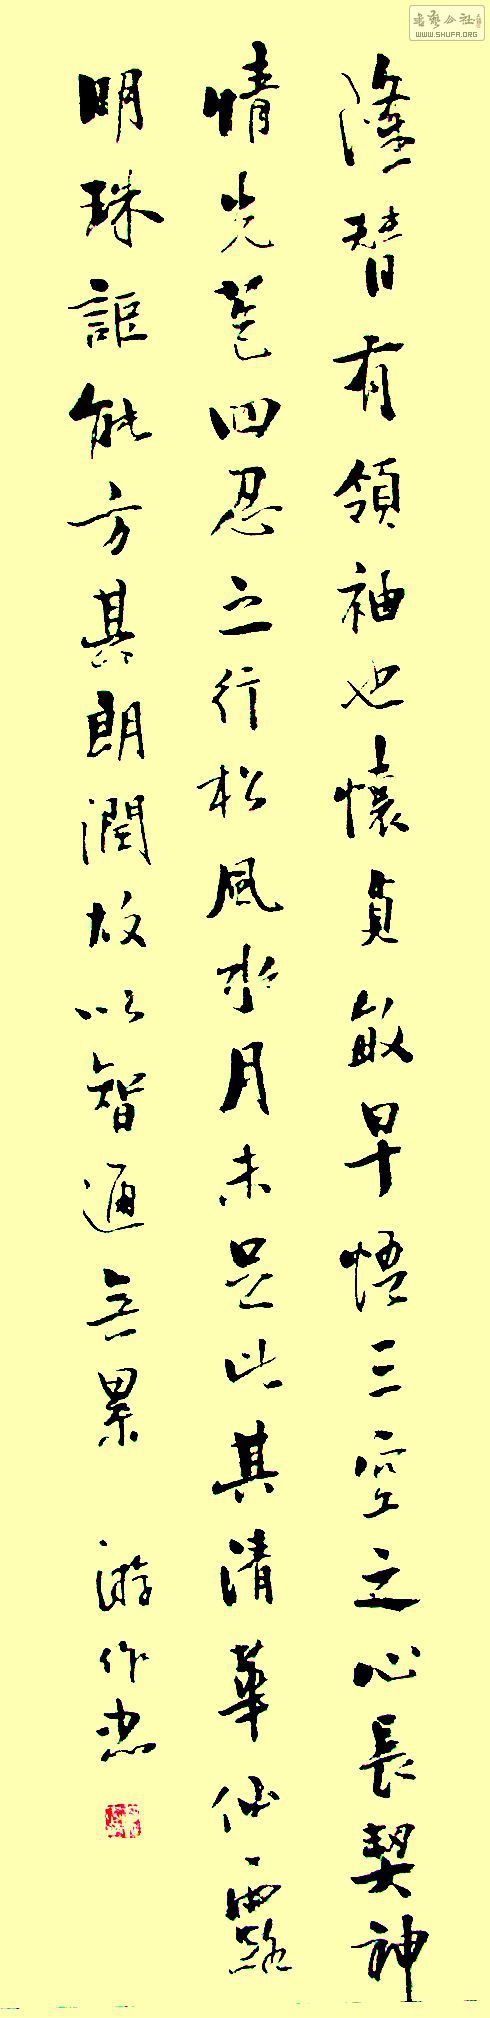 隆替有領袖也懷貞敏早悟三空之心長契神
情先苞四忍之行松風水月未足比其清華仙露
明珠詎能方其朗潤故以智通無累 游作忠
书艺公社
WWW.SHUFA.ORG